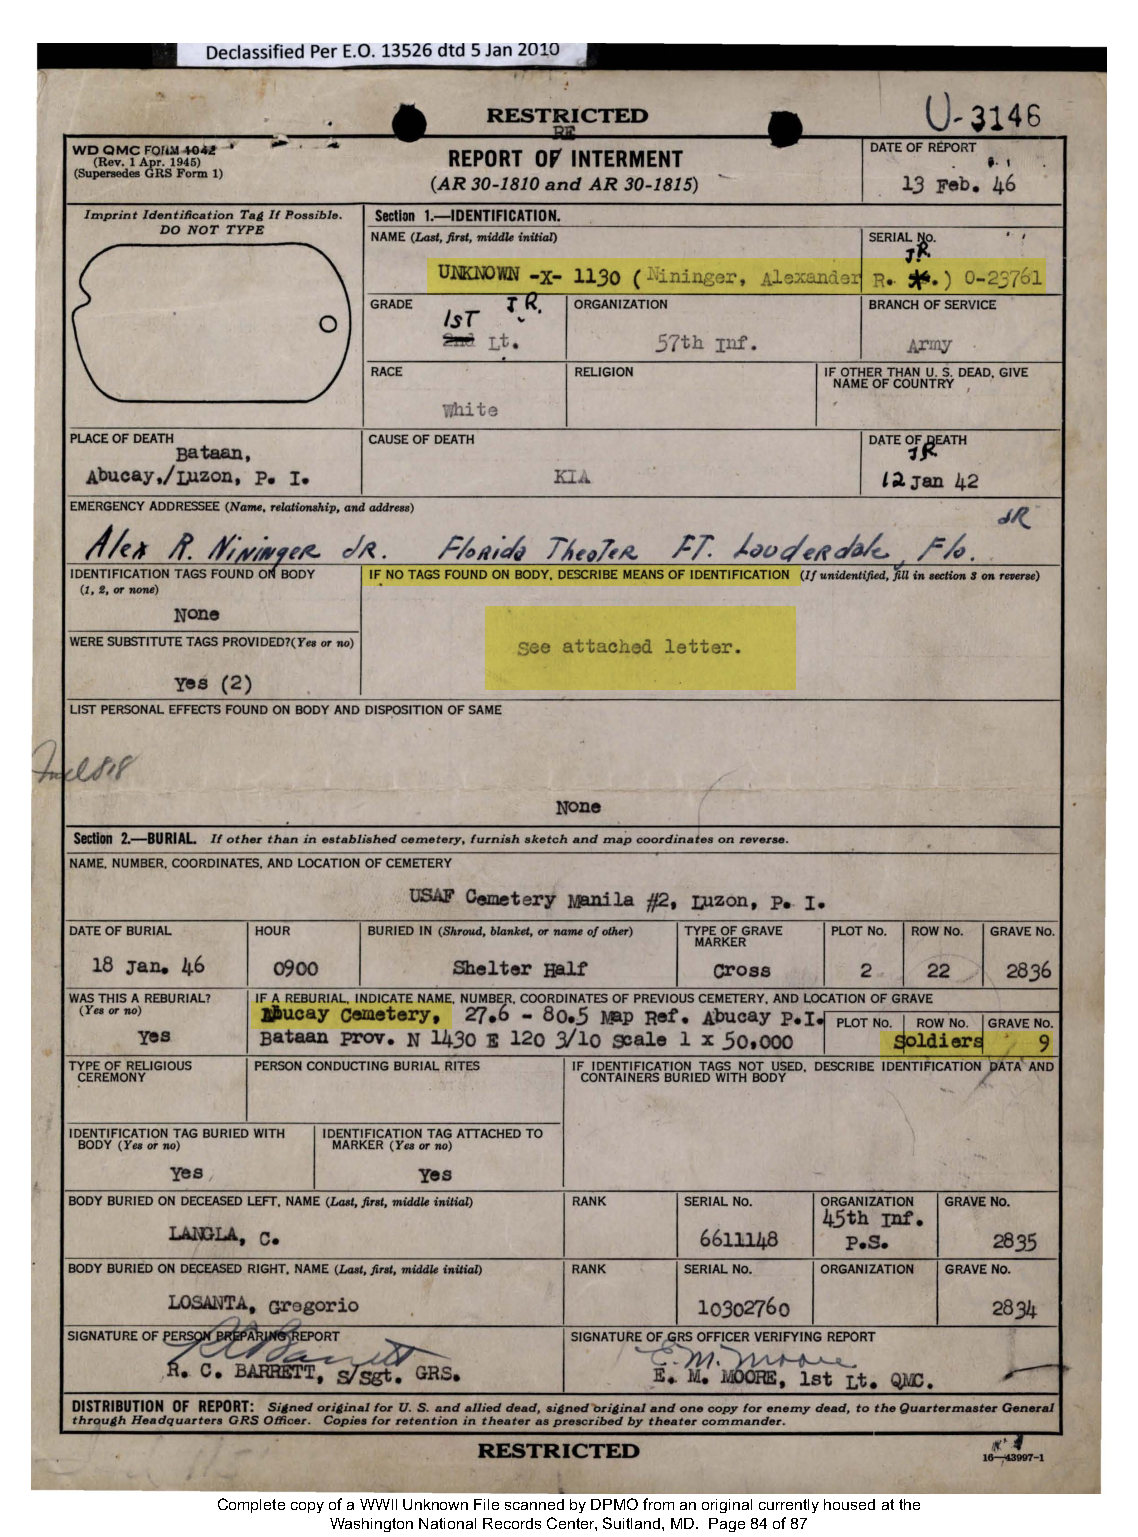 Declassified Per E.O. 13526 dtd 5 Jan 2010
RESTRICTED
U-3146
RE
WD QMC FORM 1042
(Rev. 1 Apr. 1945)
(Supersedes GRS Form 1)
REPORT OF INTERMENT
(AR 30-1810 and AR 30-1815)
DATE OF REPORT
13 Feb. 46
Imprint Identification Tag If Possible.
DO NOT TYPE
Section 1.—IDENTIFICATION.
NAME (Last, first, middle initial)
SERIAL No.
JR.
UNKNOWN -X- 1130 (Nininger, Alexander R. .) O-23761
GRADE
JR.
1ST
2nd Lt.
ORGANIZATION
57th Inf.
BRANCH OF SERVICE
Army
RACE
White
RELIGION
IF OTHER THAN U. S. DEAD, GIVE
NAME OF COUNTRY
PLACE OF DEATH
Bataan,
Abucay,/Luzon, P. I.
CAUSE OF DEATH
KIA
DATE OF DEATH
JR
12 Jan 42
EMERGENCY ADDRESSEE (Name, relationship, and address)
JR
Alex R. Nininger JR. Florida Theater FT. Lauderdale, Flo.
IDENTIFICATION TAGS FOUND ON BODY
(1, 2, or none)
None
IF NO TAGS FOUND ON BODY, DESCRIBE MEANS OF IDENTIFICATION (If unidentified, fill in section 3 on reverse)
See attached letter.
WERE SUBSTITUTE TAGS PROVIDED?(Yes or no)
Yes (2)
LIST PERSONAL EFFECTS FOUND ON BODY AND DISPOSITION OF SAME
None
Section 2.—BURIAL. If other than in established cemetery, furnish sketch and map coordinates on reverse.
NAME, NUMBER, COORDINATES, AND LOCATION OF CEMETERY
USAF Cemetery Manila #2, Luzon, P. I.
DATE OF BURIAL
18 Jan. 46
HOUR
0900
BURIED IN (Shroud, blanket, or name of other)
Shelter Half
TYPE OF GRAVE
MARKER
Cross
PLOT No.
2
ROW No.
22
GRAVE No.
2836
WAS THIS A REBURIAL?
(Yes or no)
Yes
IF A REBURIAL, INDICATE NAME, NUMBER, COORDINATES OF PREVIOUS CEMETERY, AND LOCATION OF GRAVE
Abucay Cemetery, 27.6 - 80.5 Map Ref. Abucay P.I.
Bataan Prov. N 1430 E 120 3/10 Scale 1 x 50,000
PLOT No.
ROW No.
GRAVE No.
Soldiers
9
TYPE OF RELIGIOUS
CEREMONY
PERSON CONDUCTING BURIAL RITES
IF IDENTIFICATION TAGS NOT USED, DESCRIBE IDENTIFICATION DATA AND
CONTAINERS BURIED WITH BODY
IDENTIFICATION TAG BURIED WITH
BODY (Yes or no)
Yes
IDENTIFICATION TAG ATTACHED TO
MARKER (Yes or no)
Yes
BODY BURIED ON DECEASED LEFT, NAME (Last, first, middle initial)
LANGLA, C.
RANK
SERIAL No.
6611148
ORGANIZATION
45th Inf.
P.S.
GRAVE No.
2835
BODY BURIED ON DECEASED RIGHT, NAME (Last, first, middle initial)
LOSANTA, Gregorio
RANK
SERIAL No.
10302760
ORGANIZATION
GRAVE No.
2834
SIGNATURE OF PERSON PREPARING REPORT
R C Barrett
R. C. BARRETT, S/Sgt. GRS.
SIGNATURE OF GRS OFFICER VERIFYING REPORT
E. M. Moore
E. M. MOORE, 1st Lt. QMC.
DISTRIBUTION OF REPORT: Signed original for U. S. and allied dead, signed original and one copy for enemy dead, to the Quartermaster General
through Headquarters GRS Officer. Copies for retention in theater as prescribed by theater commander.
RESTRICTED
16—43997-1
Complete copy of a WWII Unknown File scanned by DPMO from an original currently housed at the
Washington National Records Center, Suitland, MD. Page 84 of 87